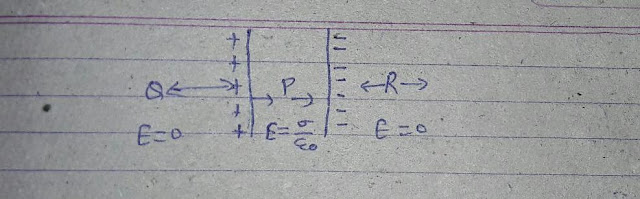 + + + + +
- - - - - -
Q P R
E=0 E=σ/ε₀ E=0